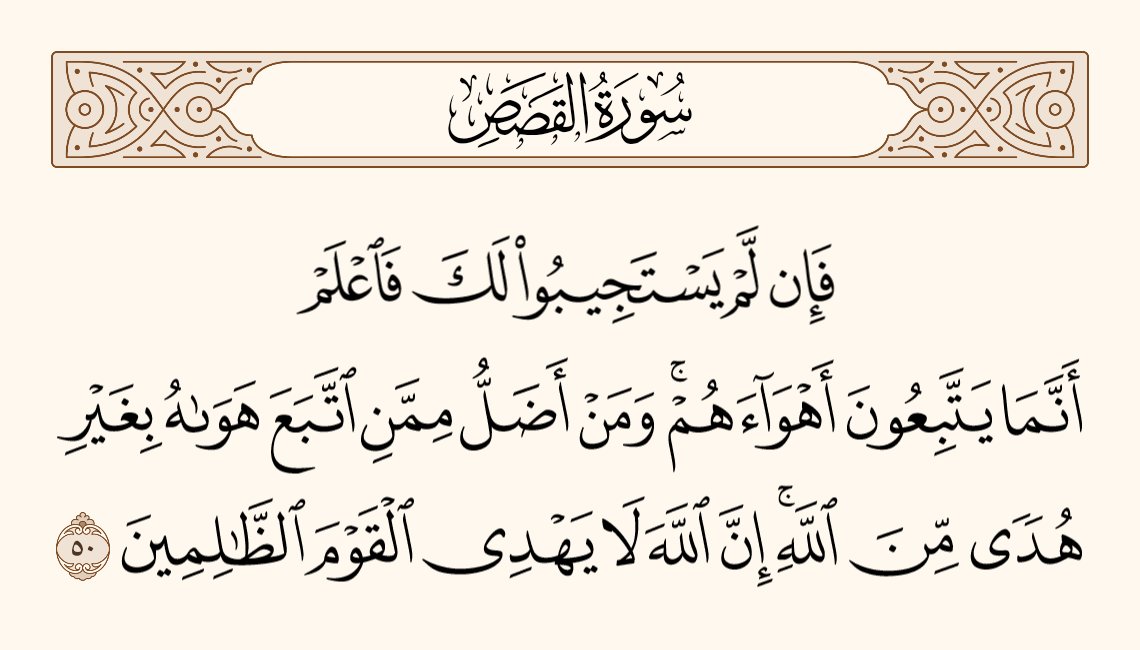 سُورَةُ القَصَصِ
فَإِن لَّمْ يَسْتَجِيبُوا۟ لَكَ فَٱعْلَمْ
أَنَّمَا يَتَّبِعُونَ أَهْوَآءَهُمْ ۚ وَمَنْ أَضَلُّ مِمَّنِ ٱتَّبَعَ هَوَىٰهُ بِغَيْرِ
هُدًى مِّنَ ٱللَّهِ ۚ إِنَّ ٱللَّهَ لَا يَهْدِى ٱلْقَوْمَ ٱلظَّٰلِمِينَ ٥٠